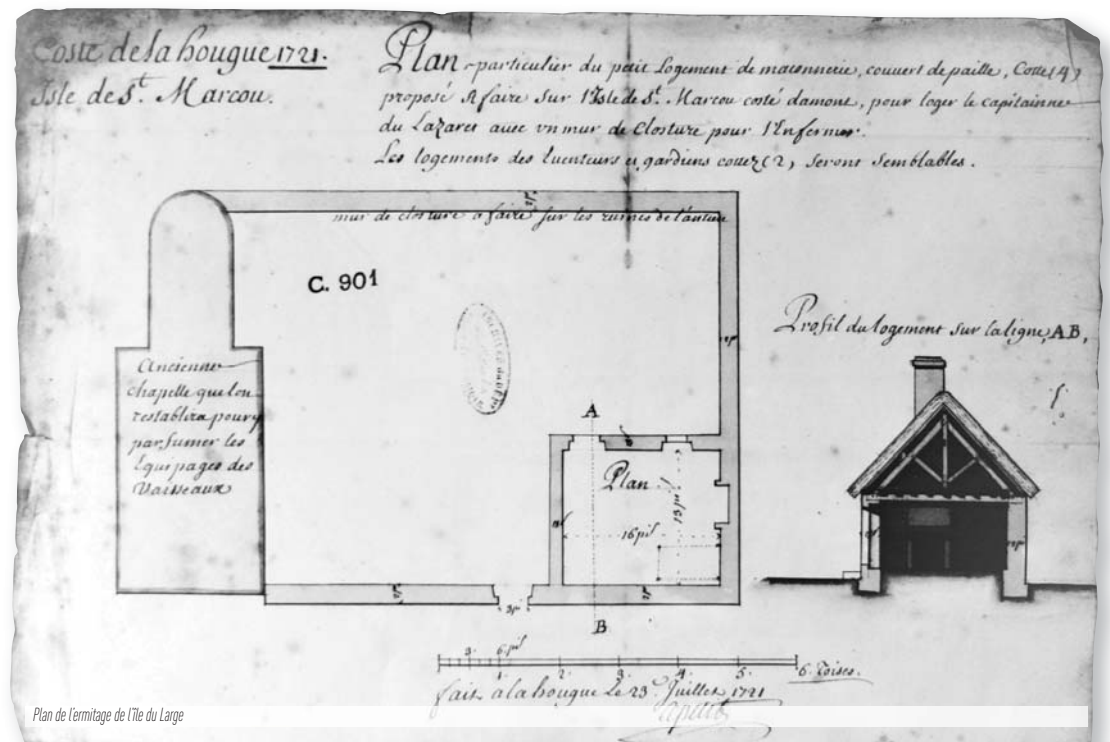 Coste de la hougue 1721.
Isle de St. Marcou.
Plan particulier du petit Logement de maconnerie, couvert de paille, Cotté (4)
proposé A faire sur l'Isle de St. Marcou costé damont, pour loger le capitainne
du Lazaret auec vn mur de Closture pour l'Enfermer.
Les logements des Euenteurs et gardiens cottez (2, seront semblables.
mur de closture a faire sur les ruines de l'antien
C. 901
Ancienne
chapelle que lon
restablira pour y
parfumer les
Equipages des
Vaisseaux
Profil du logement sur la ligne, AB,
A
Plan
13 pi
16 pi
3 pi
B
3. 6 pi
1. 2. 3. 4. 5. 6. Toises.
fait a la hougue le 23e. Juillet 1721
Plan de l'ermitage de l'île du Large